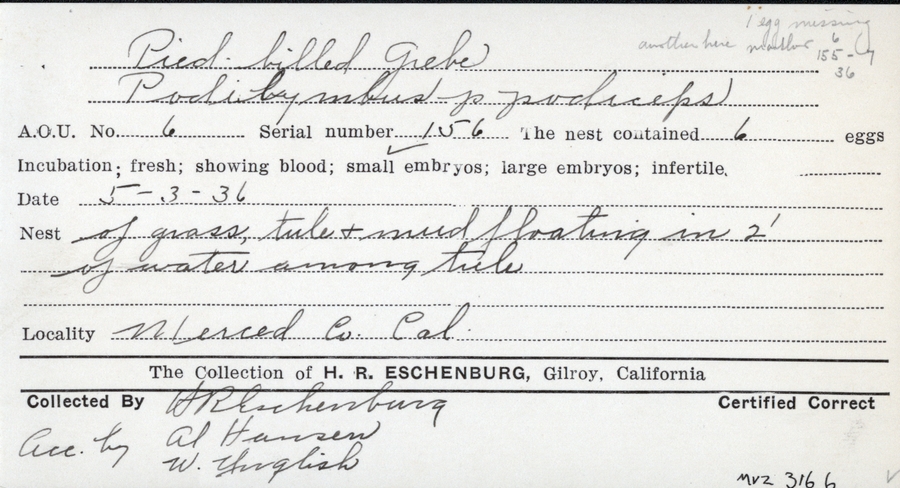 1 egg missing
another here number 6
155-7
36
Pied-billed Grebe
Podilymbus p podiceps
A.O.U. No. 6 Serial number 156 The nest contained 6 eggs
Incubation; fresh; showing blood; small embryos; large embryos; infertile.
Date 5-3-36
Nest of grass, tule + mud floating in 2'
of water among tule
Locality Merced Co. Cal.
The Collection of H. R. ESCHENBURG, Gilroy, California
Collected By HREschenburg Certified Correct
Acc. by Al Hansen
W. Unglish
MVZ 3166